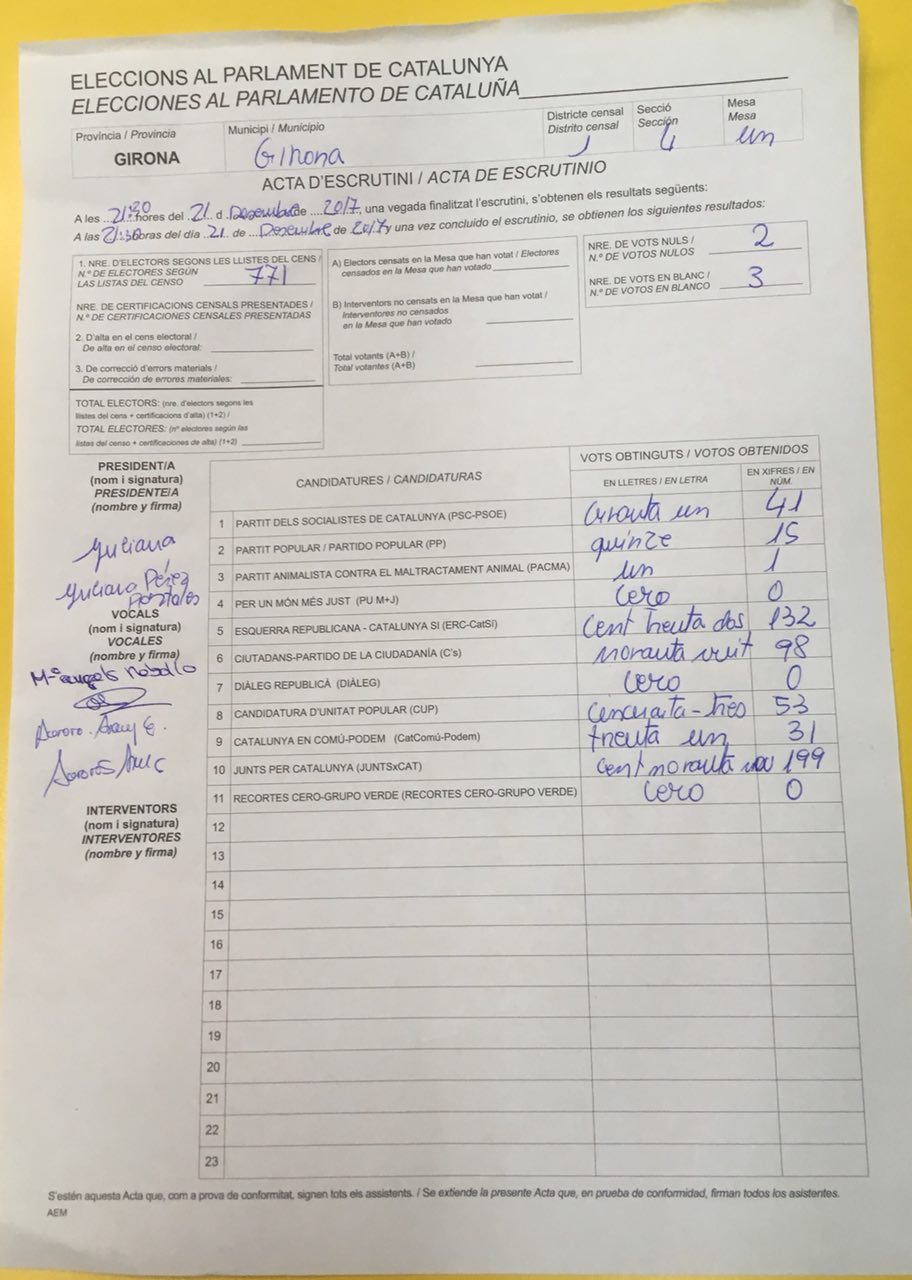 ELECCIONS AL PARLAMENT DE CATALUNYA
ELECCIONES AL PARLAMENTO DE CATALUÑA
Província / Provincia
GIRONA
Municipi / Municipio
Girona
Districte censal
Distrito censal
1
Secció
Sección
4
Mesa
Mesa
un
ACTA D'ESCRUTINI / ACTA DE ESCRUTINIO
A les 21:30 hores del 21 d Desembre de 2017, una vegada finalitzat l'escrutini, s'obtenen els resultats següents:
A las 21:30 horas del día 21 de Desembre de 2017, y una vez concluido el escrutinio, se obtienen los siguientes resultados:
1. NRE. D'ELECTORS SEGONS LES LLISTES DEL CENS /
N.º DE ELECTORES SEGÚN
LAS LISTAS DEL CENSO 771
NRE. DE CERTIFICACIONS CENSALS PRESENTADES /
N.º DE CERTIFICACIONES CENSALES PRESENTADAS
2. D'alta en el cens electoral /
De alta en el censo electoral:
3. De correcció d'errors materials /
De corrección de errores materiales:
TOTAL ELECTORS: (nre. d'electors segons les
llistes del cens + certificacions d'alta) (1+2) /
TOTAL ELECTORES: (nº electores según las
listas del censo + certificaciones de alta) (1+2)
A) Electors censats en la Mesa que han votat / Electores
censados en la Mesa que han votado
B) Interventors no censats en la Mesa que han votat /
Interventores no censados
en la Mesa que han votado
Total votants (A+B) /
Total votantes (A+B)
NRE. DE VOTS NULS /
N.º DE VOTOS NULOS 2
NRE. DE VOTS EN BLANC /
N.º DE VOTOS EN BLANCO 3
PRESIDENT/A
(nom i signatura)
PRESIDENTE/A
(nombre y firma)
Yuliana
Yuliana Pérez
VOCALS
(nom i signatura)
VOCALES
(nombre y firma)
Mª angels
INTERVENTORS
(nom i signatura)
INTERVENTORES
(nombre y firma)
CANDIDATURES / CANDIDATURAS
VOTS OBTINGUTS / VOTOS OBTENIDOS
EN LLETRES / EN LETRA
EN XIFRES / EN
NÚM.
1 PARTIT DELS SOCIALISTES DE CATALUNYA (PSC-PSOE) un 41
2 PARTIT POPULAR / PARTIDO POPULAR (PP) quinze 15
3 PARTIT ANIMALISTA CONTRA EL MALTRACTAMENT ANIMAL (PACMA) un 1
4 PER UN MÓN MÉS JUST (PU M+J) cero 0
5 ESQUERRA REPUBLICANA - CATALUNYA SI (ERC-CatSí) cent trenta dos 132
6 CIUTADANS-PARTIDO DE LA CIUDADANÍA (C's) noranta vuit 98
7 DIÀLEG REPUBLICÀ (DIÀLEG) cero 0
8 CANDIDATURA D'UNITAT POPULAR (CUP) cencuanta-tres 53
9 CATALUNYA EN COMÚ-PODEM (CatComú-Podem) trenta un 31
10 JUNTS PER CATALUNYA (JUNTSxCAT) cent noranta nou 199
11 RECORTES CERO-GRUPO VERDE (RECORTES CERO-GRUPO VERDE) cero 0
12
13
14
15
16
17
18
19
20
21
22
23
S'estén aquesta Acta que, com a prova de conformitat, signen tots els assistents. / Se extiende la presente Acta que, en prueba de conformidad, firman todos los asistentes.
AEM